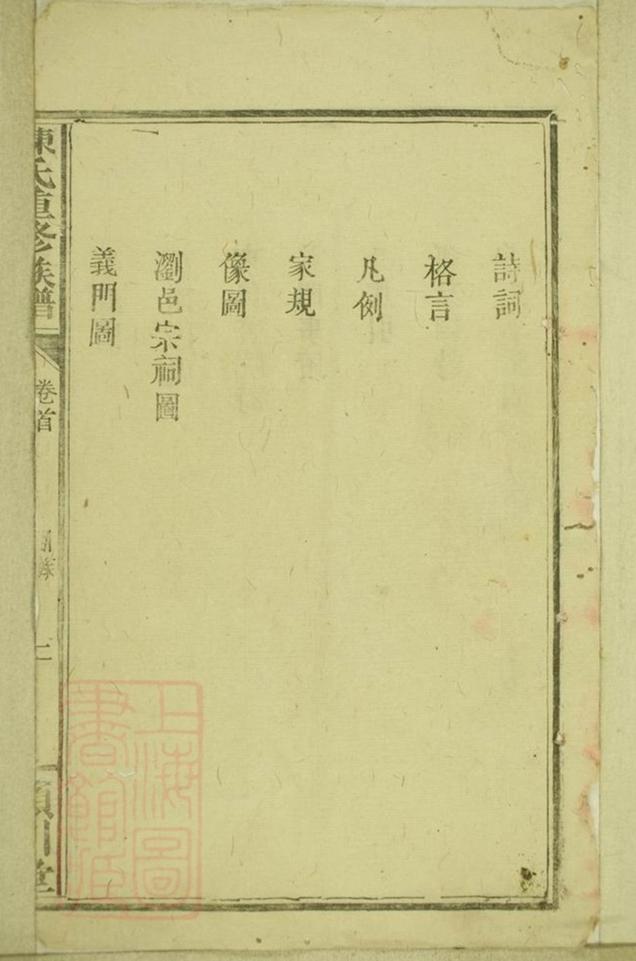 詩詞
格言
凡例
家規
像圖
瀏邑宗祠圖
義門圖
陳氏重修族譜
卷首
目錄
二
潁川堂
上海圖
書館藏